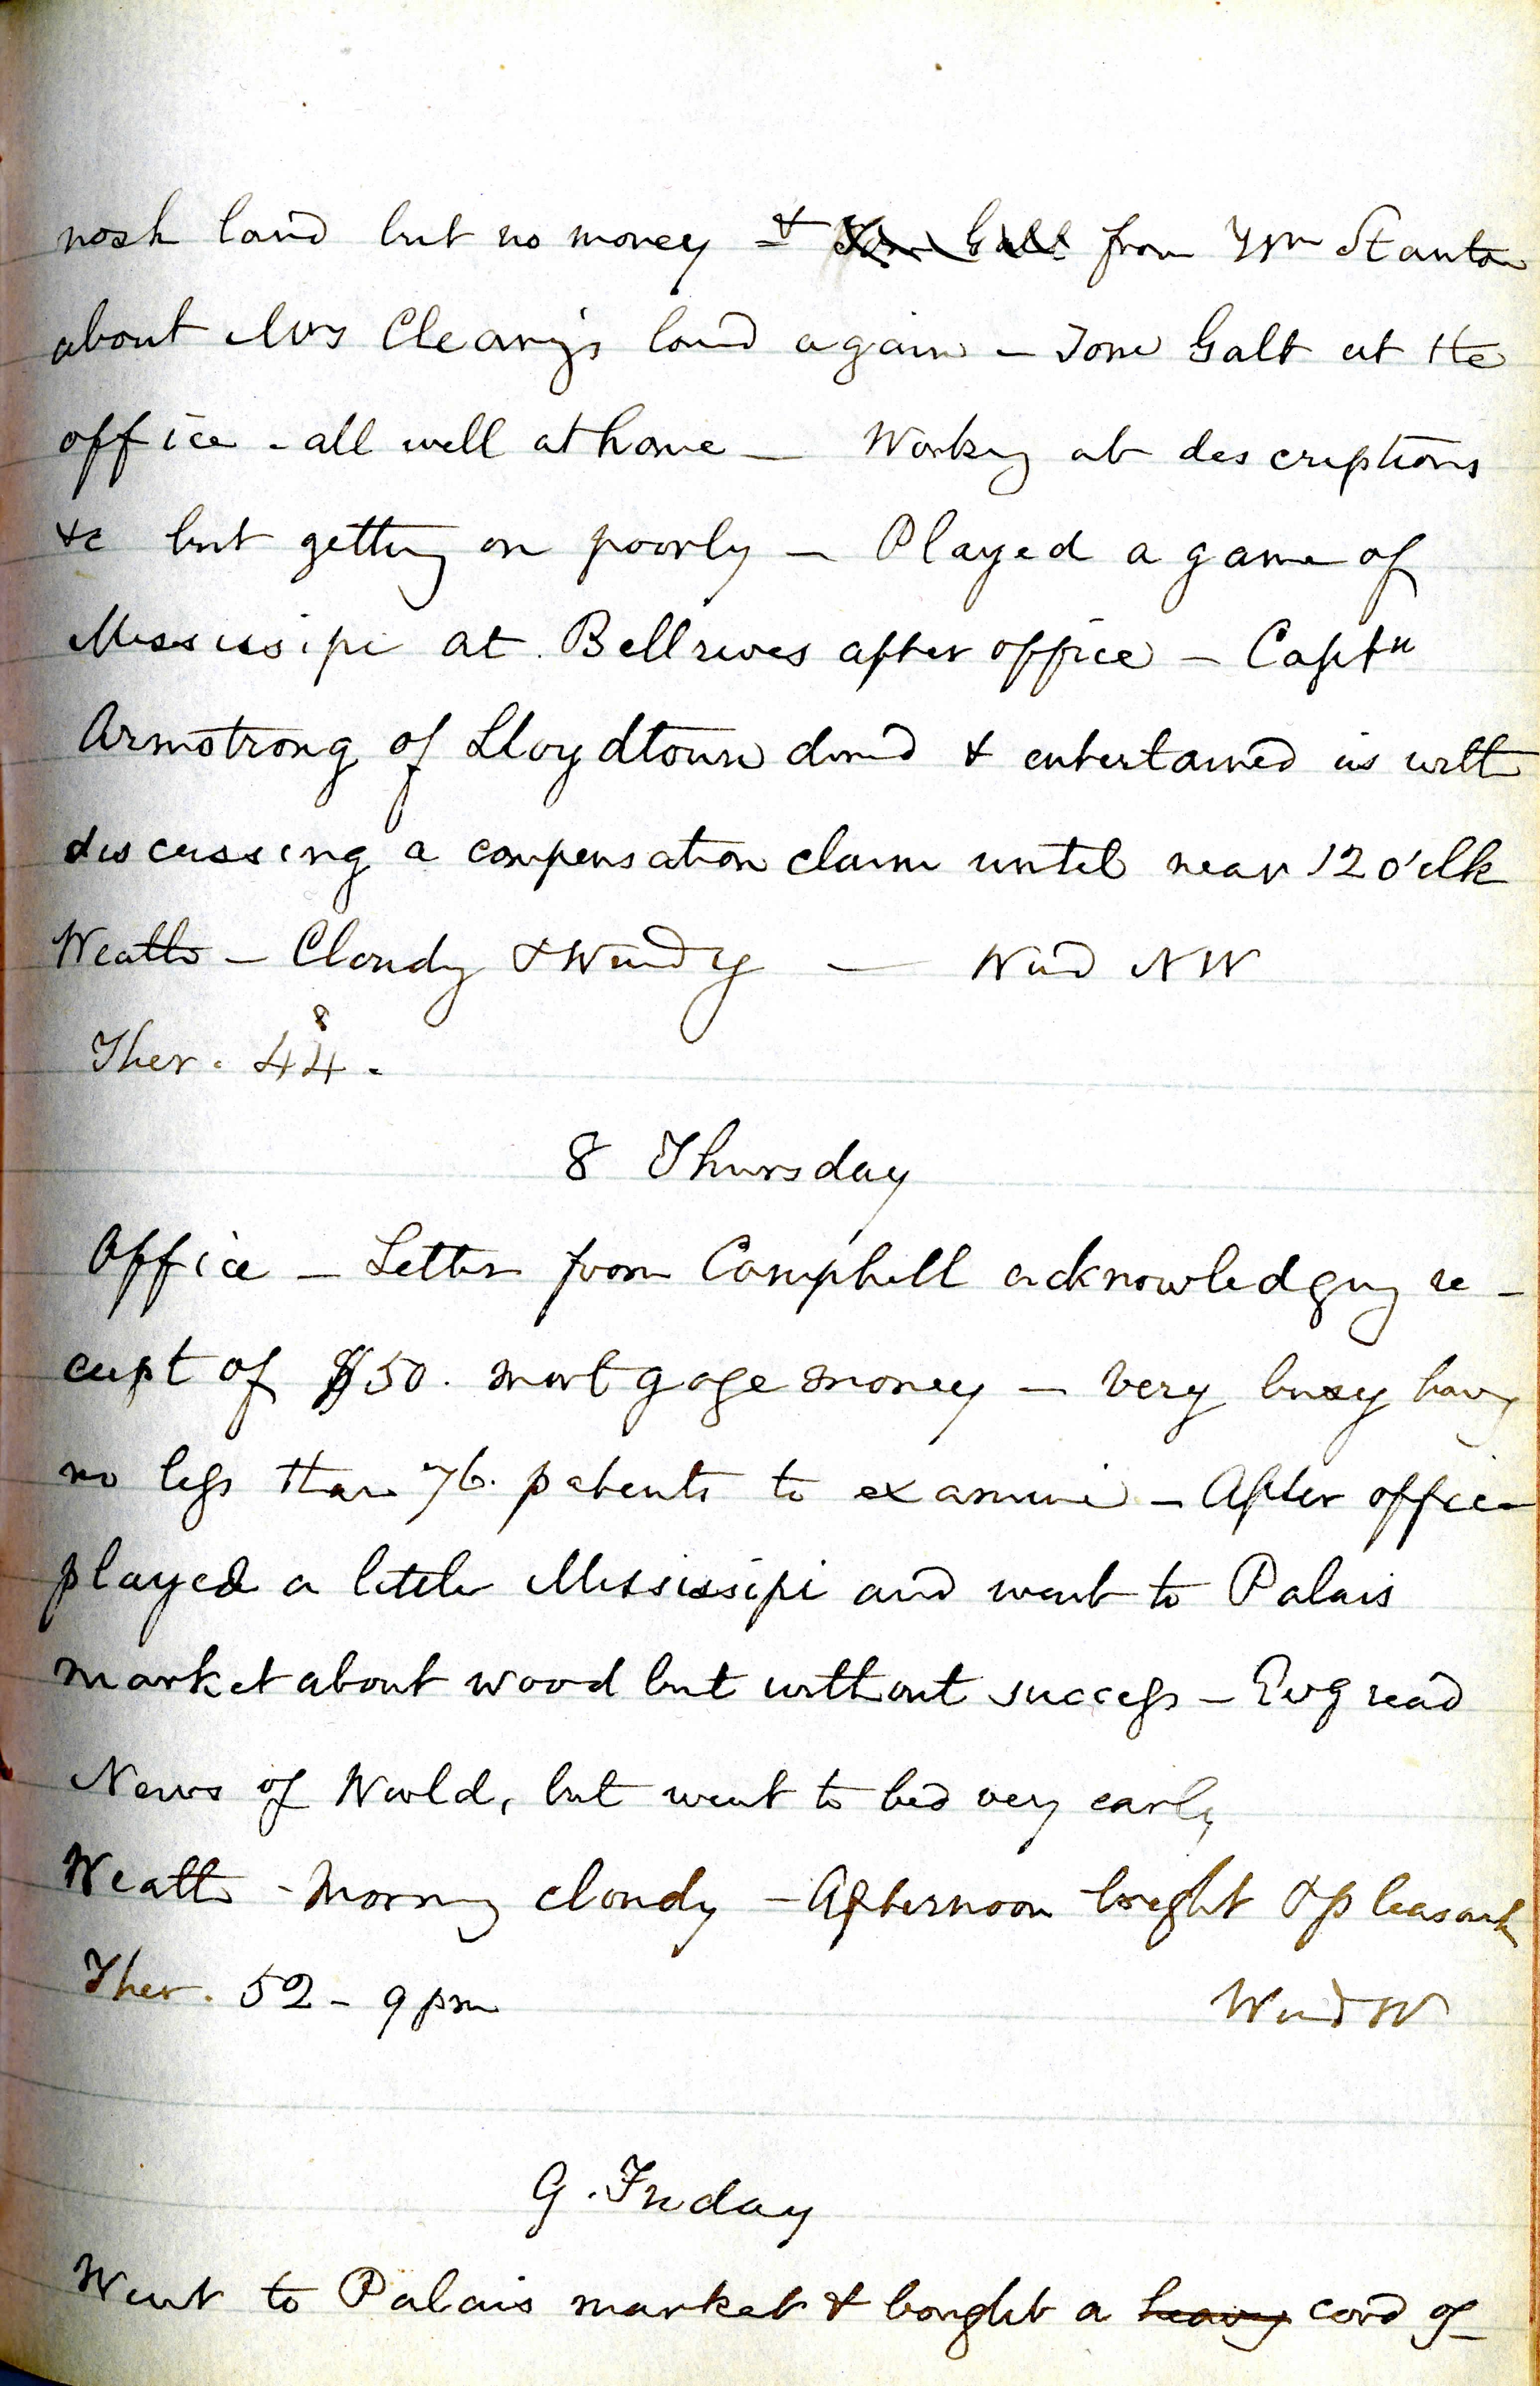 nosh land but no money & Tom Galt from Wm Stanton
about Mrs Cleary's land again – Tom Galt at the
office – all well at home – Workg at descriptions
&c but gettng on poorly – Played a game of
Mississipi at Bellrives after office – Captn
Armstrong of Lloydtown dined & entertained us with
discussing a compensation claim until near 12 o'clk
Weathr – Cloudy & Windy — Wind NW
Ther. 44°.
8 Thursday
Office – Letter from Campbell acknowledgng re-
ceipt of $50. mortgage money – very busy havg
no less than 76. patents to examine – After office
played a little Mississipi and went to Palais
market about wood but without success – Evg read
News of World, but went to bed very early
Weathr – Morng cloudy – Afternoon bright & pleasant
Ther. 52 – 9 pm Wind W
9. Friday
Went to Palais market & bought a heavy cord of